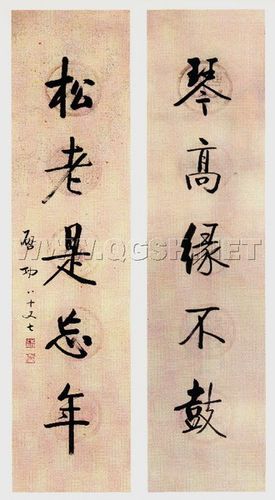 琴高缘不鼓
松老是忘年
启功八十又七
WWW.QGSH.NET